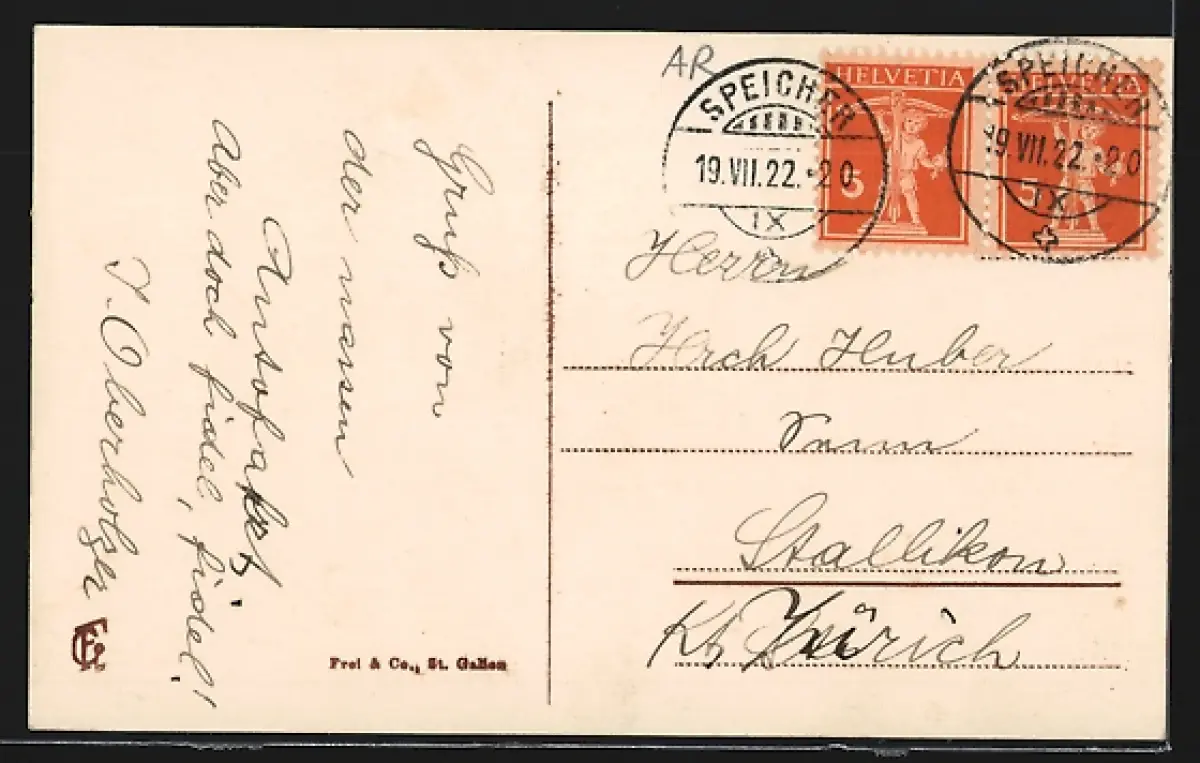 Gruß von
der nassen
Autofahrt
aber doch fidel, fidel!
J. Oberholzer
Frei & Co., St. Gallen
AR
SPEICHER
19.VII.22.-20
IX
HELVETIA
5
HELVETIA
5
SPEICHER
19.VII.22.-20
IX
Herrn
Hrch Huber
Stallikon
Kt Zürich